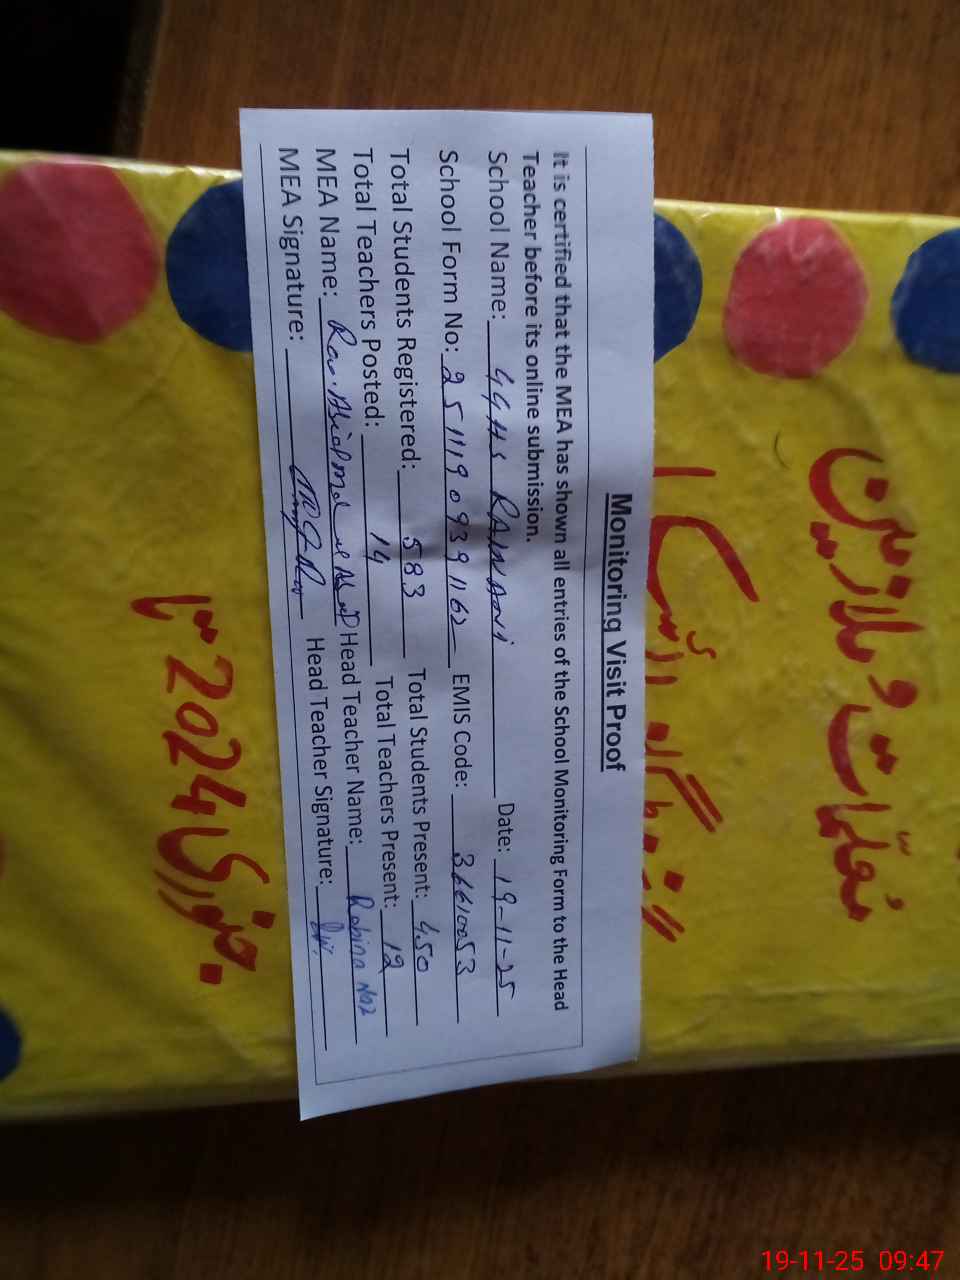 Monitoring Visit Proof
It is certified that the MEA has shown all entries of the School Monitoring Form to the Head
Teacher before its online submission.
School Name: GGHS RAWANI Date: 19-11-25
School Form No: 25111909391162 EMIS Code: 36610053
Total Students Registered: 583 Total Students Present: 450
Total Teachers Posted: 14 Total Teachers Present: 12
MEA Name: Head Teacher Name: Robina Naz
MEA Signature: Head Teacher Signature:
معلمات و ملازمین
جنوری 2024 تا
19-11-25 09:47